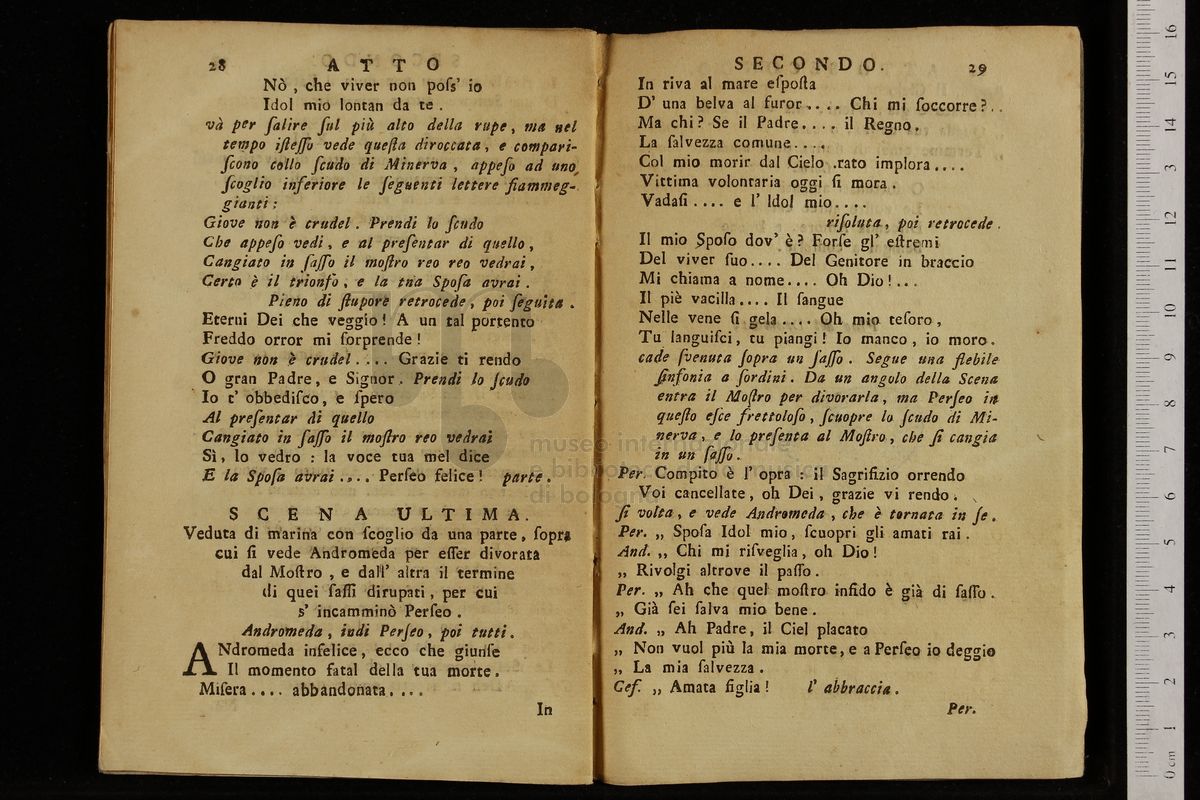 28 ATTO
Nò , che viver non poſs' io
Idol mio lontan da te .
và per ſalire ſul più alto della rupe, ma nel
tempo iſteſſo vede queſta diroccata, e compari-
ſcono collo ſcudo di Minerva , appeſo ad uno
ſcoglio inferiore le ſeguenti lettere fiammeg-
gianti :
Giove non è crudel . Prendi lo ſcudo
Che appeſo vedi , e al preſentar di quello ,
Cangiato in ſaſſo il moſtro reo reo vedrai ,
Certo è il trionfo , e la tna Spoſa avrai .
Pieno di ſtupore retrocede, poi ſeguita .
Eterni Dei che veggio ! A un tal portento
Freddo orror mi ſorprende !
Giove non è crudel .... Grazie ti rendo
O gran Padre, e Signor . Prendi lo ſcudo
Io t' obbediſco, e ſpero
Al preſentar di quello
Cangiato in ſaſſo il moſtro reo vedrai
Sì, lo vedro : la voce tua mel dice
E la Spoſa avrai .... Perſeo felice ! parte .
SCENA ULTIMA.
Veduta di marina con ſcoglio da una parte, ſopra
cui ſi vede Andromeda per eſſer divorata
dal Moſtro , e dall' altra il termine
di quei ſaſſi dirupati , per cui
s' incamminò Perſeo .
Andromeda , indi Perſeo, poi tutti .
ANdromeda infelice, ecco che giunſe
Il momento fatal della tua morte .
Miſera .... abbandonata ....
In
SECONDO. 29
In riva al mare eſpoſta
D' una belva al furor .... Chi mi ſoccorre ? ..
Ma chi ? Se il Padre .... il Regno,
La ſalvezza comune ....
Col mio morir dal Cielo .rato implora ....
Vittima volontaria oggi ſi mora .
Vadaſi .... e l' Idol mio ....
riſoluta, poi retrocede .
Il mio Spoſo dov' è ? Forſe gl' eſtremi
Del viver ſuo .... Del Genitore in braccio
Mi chiama a nome .... Oh Dio ! ...
Il piè vacilla .... Il ſangue
Nelle vene ſi gela .... Oh mio teſoro ,
Tu languiſci, tu piangi ! Io manco , io moro .
cade ſvenuta ſopra un ſaſſo . Segue una flebile
ſinfonia a ſordini . Da un angolo della Scena
entra il Moſtro per divorarla, ma Perſeo in
queſto eſce frettoloſo , ſcuopre lo ſcudo di Mi-
nerva , e lo preſenta al Moſtro , che ſi cangia
in un ſaſſo .
Per. Compito è l' opra : il Sagrifizio orrendo
Voi cancellate , oh Dei , grazie vi rendo .
ſi volta , e vede Andromeda , che è tornata in ſe .
Per. „ Spoſa Idol mio , ſcuopri gli amati rai .
And. „ Chi mi riſveglia , oh Dio !
„ Rivolgi altrove il paſſo .
Per. „ Ah che quel moſtro infido è già di ſaſſo .
„ Già ſei ſalva mio bene .
And. „ Ah Padre, il Ciel placato
„ Non vuol più la mia morte, e a Perſeo io deggio
„ La mia ſalvezza .
Cef. „ Amata figlia ! l' abbraccia .
Per.
museo internazionale
e biblioteca della musica
di bologna
0 cm 1 2 3 4 5 6 7 8 9 10 11 12 13 14 15 16